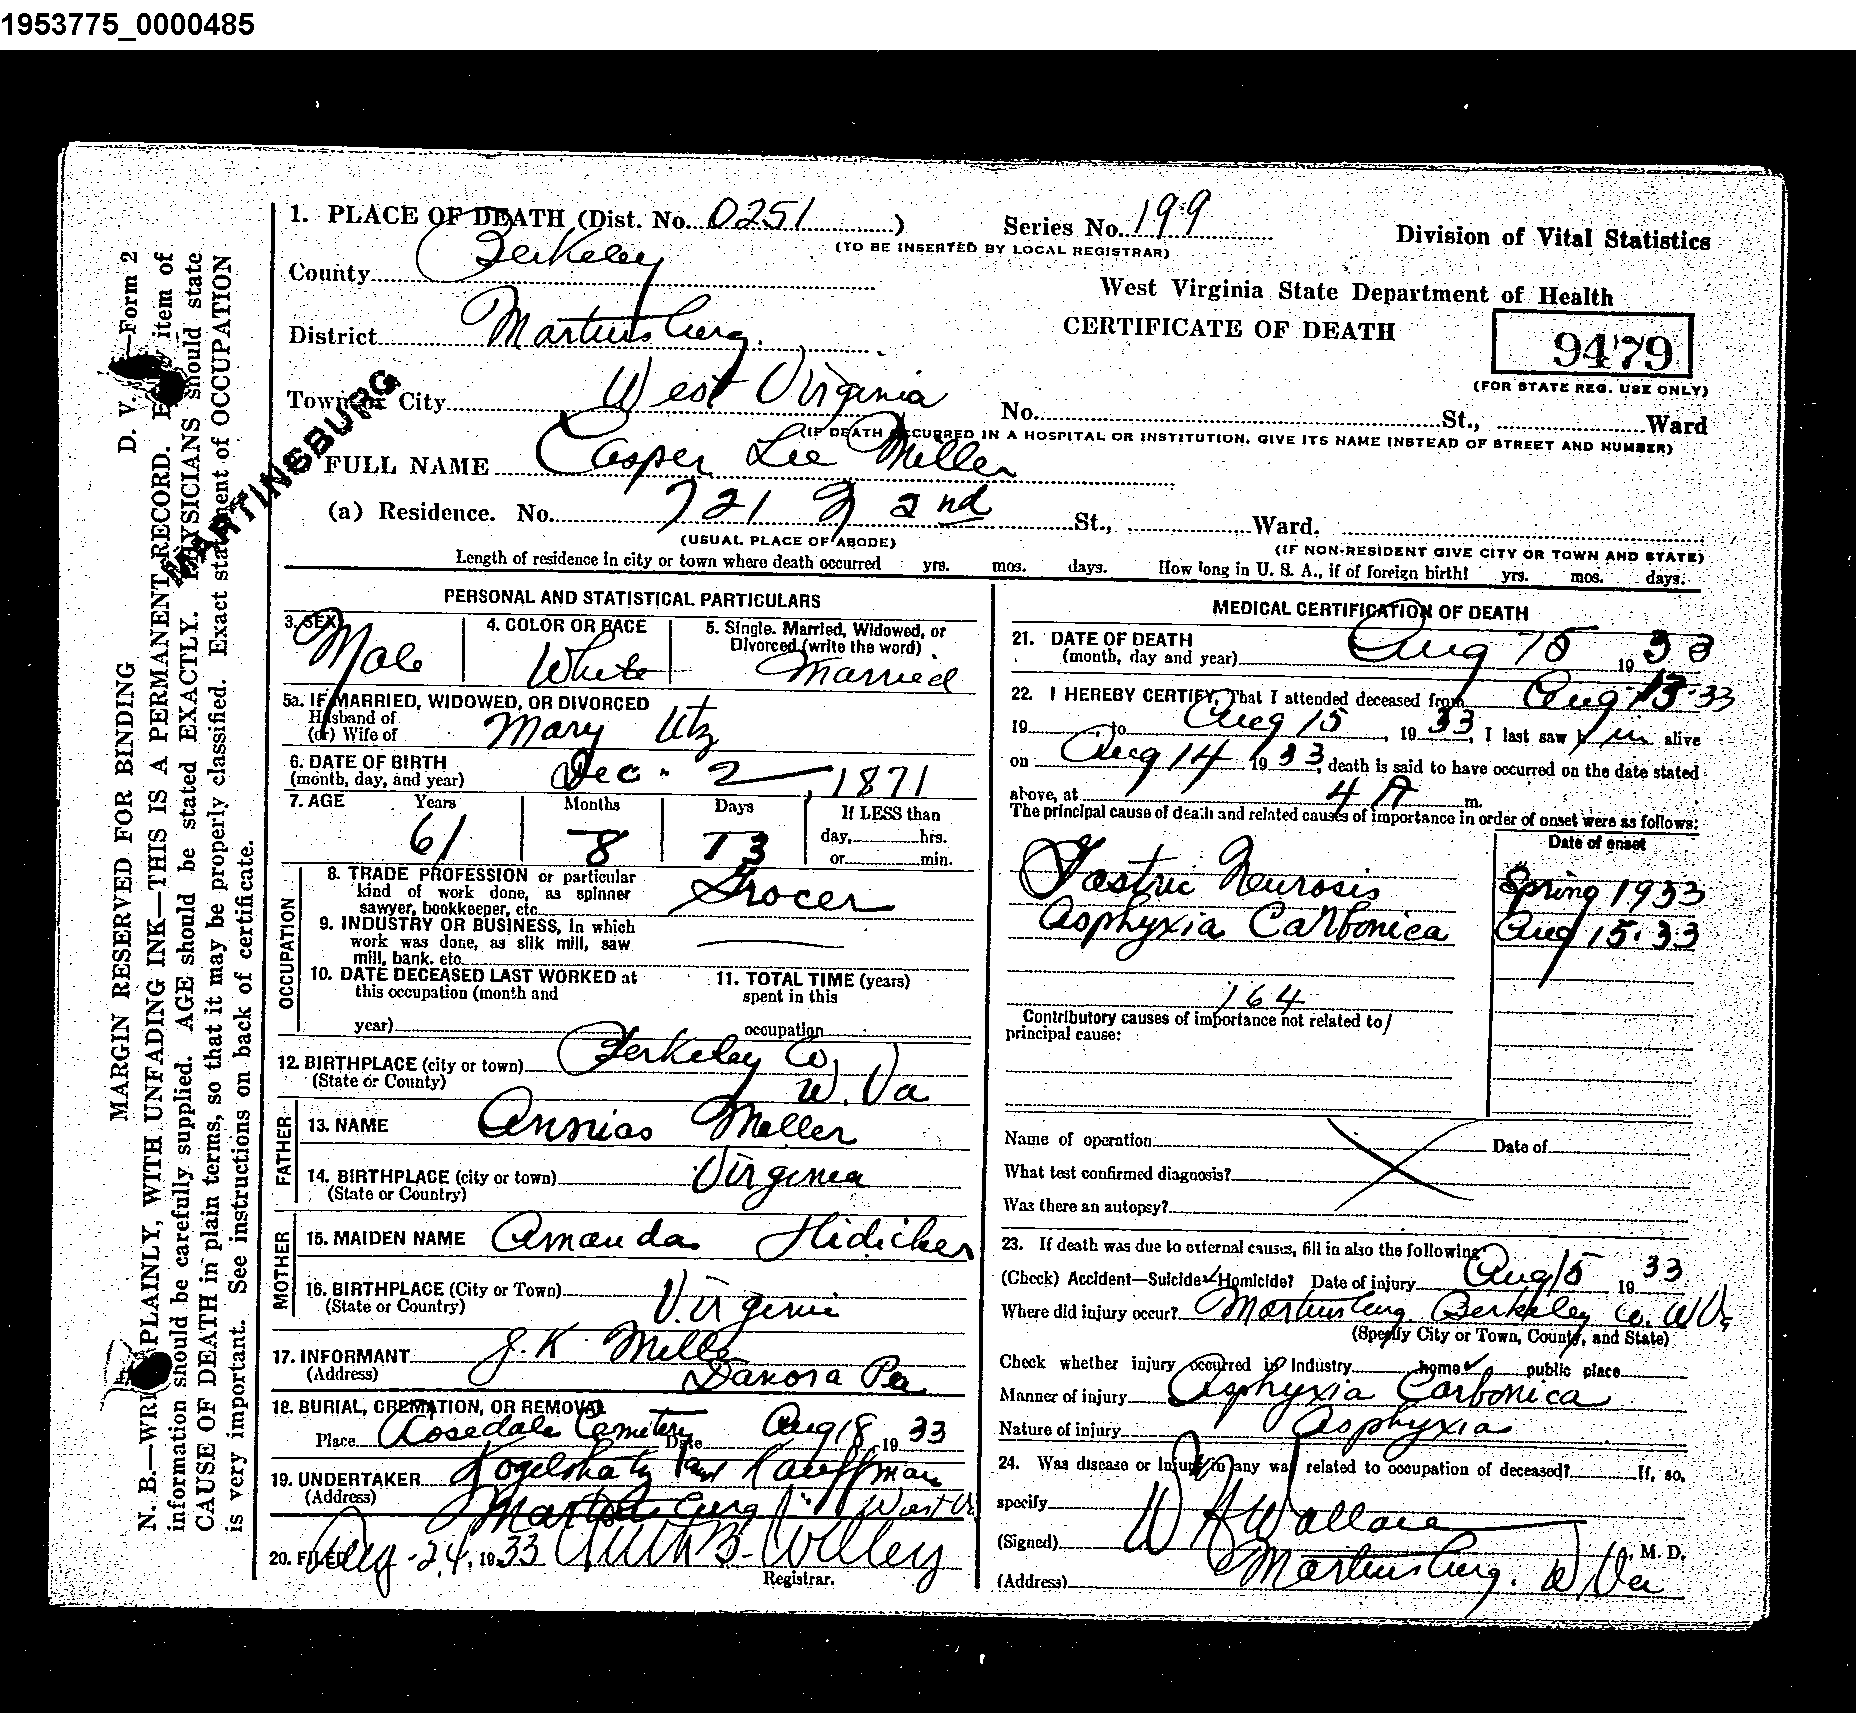 1953775_0000485
1. PLACE OF DEATH (Dist. No. 0251 ) Series No. 199 Division of Vital Statistics
(TO BE INSERTED BY LOCAL REGISTRAR)
County Berkeley
West Virginia State Department of Health
District Martinsburg. CERTIFICATE OF DEATH 9479
(FOR STATE REG. USE ONLY)
Town or City West Virginia No. St., Ward
(IF DEATH OCCURRED IN A HOSPITAL OR INSTITUTION, GIVE ITS NAME INSTEAD OF STREET AND NUMBER)
MARTINSBURG
FULL NAME Casper Lee Miller
(a) Residence. No. 721 2nd St., Ward.
(USUAL PLACE OF ABODE) (IF NON-RESIDENT GIVE CITY OR TOWN AND STATE)
Length of residence in city or town where death occurred yrs. mos. days. How long in U. S. A., if of foreign birth? yrs. mos. days.
PERSONAL AND STATISTICAL PARTICULARS
3. SEX 4. COLOR OR RACE 5. Single. Married, Widowed, or
Divorced (write the word)
Male White Married
5a. IF MARRIED, WIDOWED, OR DIVORCED
Husband of
(or) Wife of Mary Utz
6. DATE OF BIRTH
(month, day, and year) Dec. 2, 1871
7. AGE Years Months Days If LESS than
61 8 13 day, hrs.
or min.
OCCUPATION
8. TRADE PROFESSION or particular
kind of work done, as spinner
sawyer, bookkeeper, etc. Grocer
9. INDUSTRY OR BUSINESS, in which
work was done, as silk mill, saw
mill, bank. etc.
10. DATE DECEASED LAST WORKED at 11. TOTAL TIME (years)
this occupation (month and spent in this
year) occupation
12. BIRTHPLACE (city or town) Berkeley Co,
(State or County) W. Va
FATHER
13. NAME Annias Miller
14. BIRTHPLACE (city or town) Virginia
(State or Country)
MOTHER
15. MAIDEN NAME Amanda Hidicker
16. BIRTHPLACE (City or Town)
(State or Country) Virginia
17. INFORMANT J. K Miller
(Address) Danora Pa
18. BURIAL, CREMATION, OR REMOVAL
Place Rosedale Cemetery Date Aug 18, 1933
19. UNDERTAKER Kauffman
(Address) Martinsburg West Va
20. FILED Aug-24, 1933 Ruth B. Willey
Registrar.
MEDICAL CERTIFICATION OF DEATH
21. DATE OF DEATH
(month, day and year) Aug 15 1933
22. I HEREBY CERTIFY, That I attended deceased from Aug 13. 33
19 to Aug 15, 1933, I last saw him alive
on Aug 14 1933, death is said to have occurred on the date stated
above, at 4 A m.
The principal cause of death and related causes of importance in order of onset were as follows:
Date of onset
Gastric Neurosis Spring 1933
Asphyxia Carbonica Aug 15. 33
164
Contributory causes of importance not related to
principal cause:
Name of operation Date of
What test confirmed diagnosis?
Was there an autopsy?
23. If death was due to external causes, fill in also the following:
(Check) Accident—Suicide✓Homicide? Date of injury Aug 15 1933
Where did injury occur? Martinsburg. Berkeley Co. W Va
(Specify City or Town, County, and State)
Check whether injury occurred in Industry home✓ public place
Manner of injury Asphyxia Carbonica
Nature of injury Asphyxia
24. Was disease or injury in any way related to occupation of deceased? If, so,
specify
(Signed) W H Wallace, M. D.
(Address) Martinsburg. W Va
D. V. —Form 2
MARGIN RESERVED FOR BINDING
N. B.—WRITE PLAINLY, WITH UNFADING INK—THIS IS A PERMANENT RECORD. Every item of
information should be carefully supplied. AGE should be stated EXACTLY. PHYSICIANS should state
CAUSE OF DEATH in plain terms, so that it may be properly classified. Exact statement of OCCUPATION
is very important. See instructions on back of certificate.